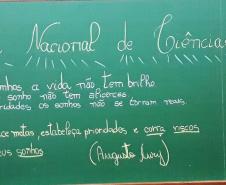 Nacional de Ciência
sonhos a vida não tem brilho.
sonho não tem alicerces
ridades os sonhos não se tornam reais.
metas, estabeleça prioridades e corra riscos
seus sonhos
(Augusto Cury)